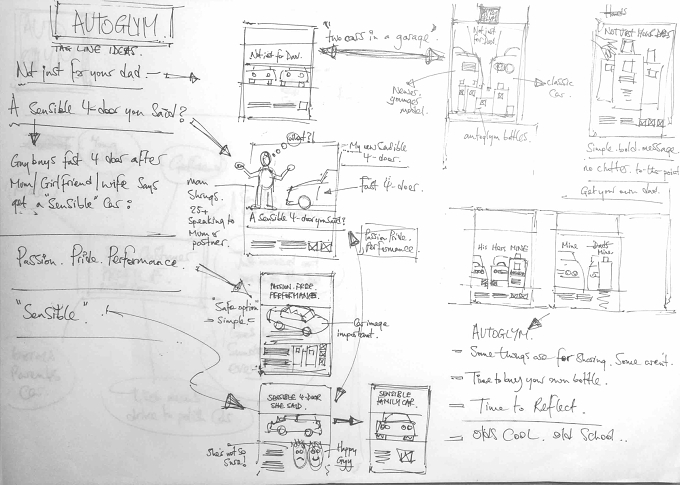 AUTOGLYM.
TAG LINE IDEAS.
Not just for your dad
A Sensible 4-door you Said?
Guy buys fast 4 door after
Mum/Girlfriend/wife Says
get a "Sensible" Car.
Passion. Pride. Performance.
"Sensible".
Not just for Dad.
"two cars in a garage"
Newer
model.
classic
Car.
autoglym bottles.
Not just
for Dad.
NOT JUST YOUR DADS
Simple. bold. message.
no clutter. to the point
Get your own dad.
What?!
My new Sensible
4-door.
Fast 4-door.
Mum
Shrugs.
25+
Speaking to
Mum or
partner.
A Sensible 4-door you Said?
Passion Pride.
Performance
PASSION. PRIDE.
PERFORMANCE.
"Safe option"
Simple
Car image
important.
SENSIBLE 4-DOOR
SHE SAID.
She's not so
Sure!
Happy
Guy
SENSIBLE
FAMILY CAR.
His Hers MINE
Mine
Dads
Mine
AUTOGLYM.
Some things are for sharing. Some aren't.
Time to buy your own bottle.
Time to Reflect.
Old's COOL. Old School..